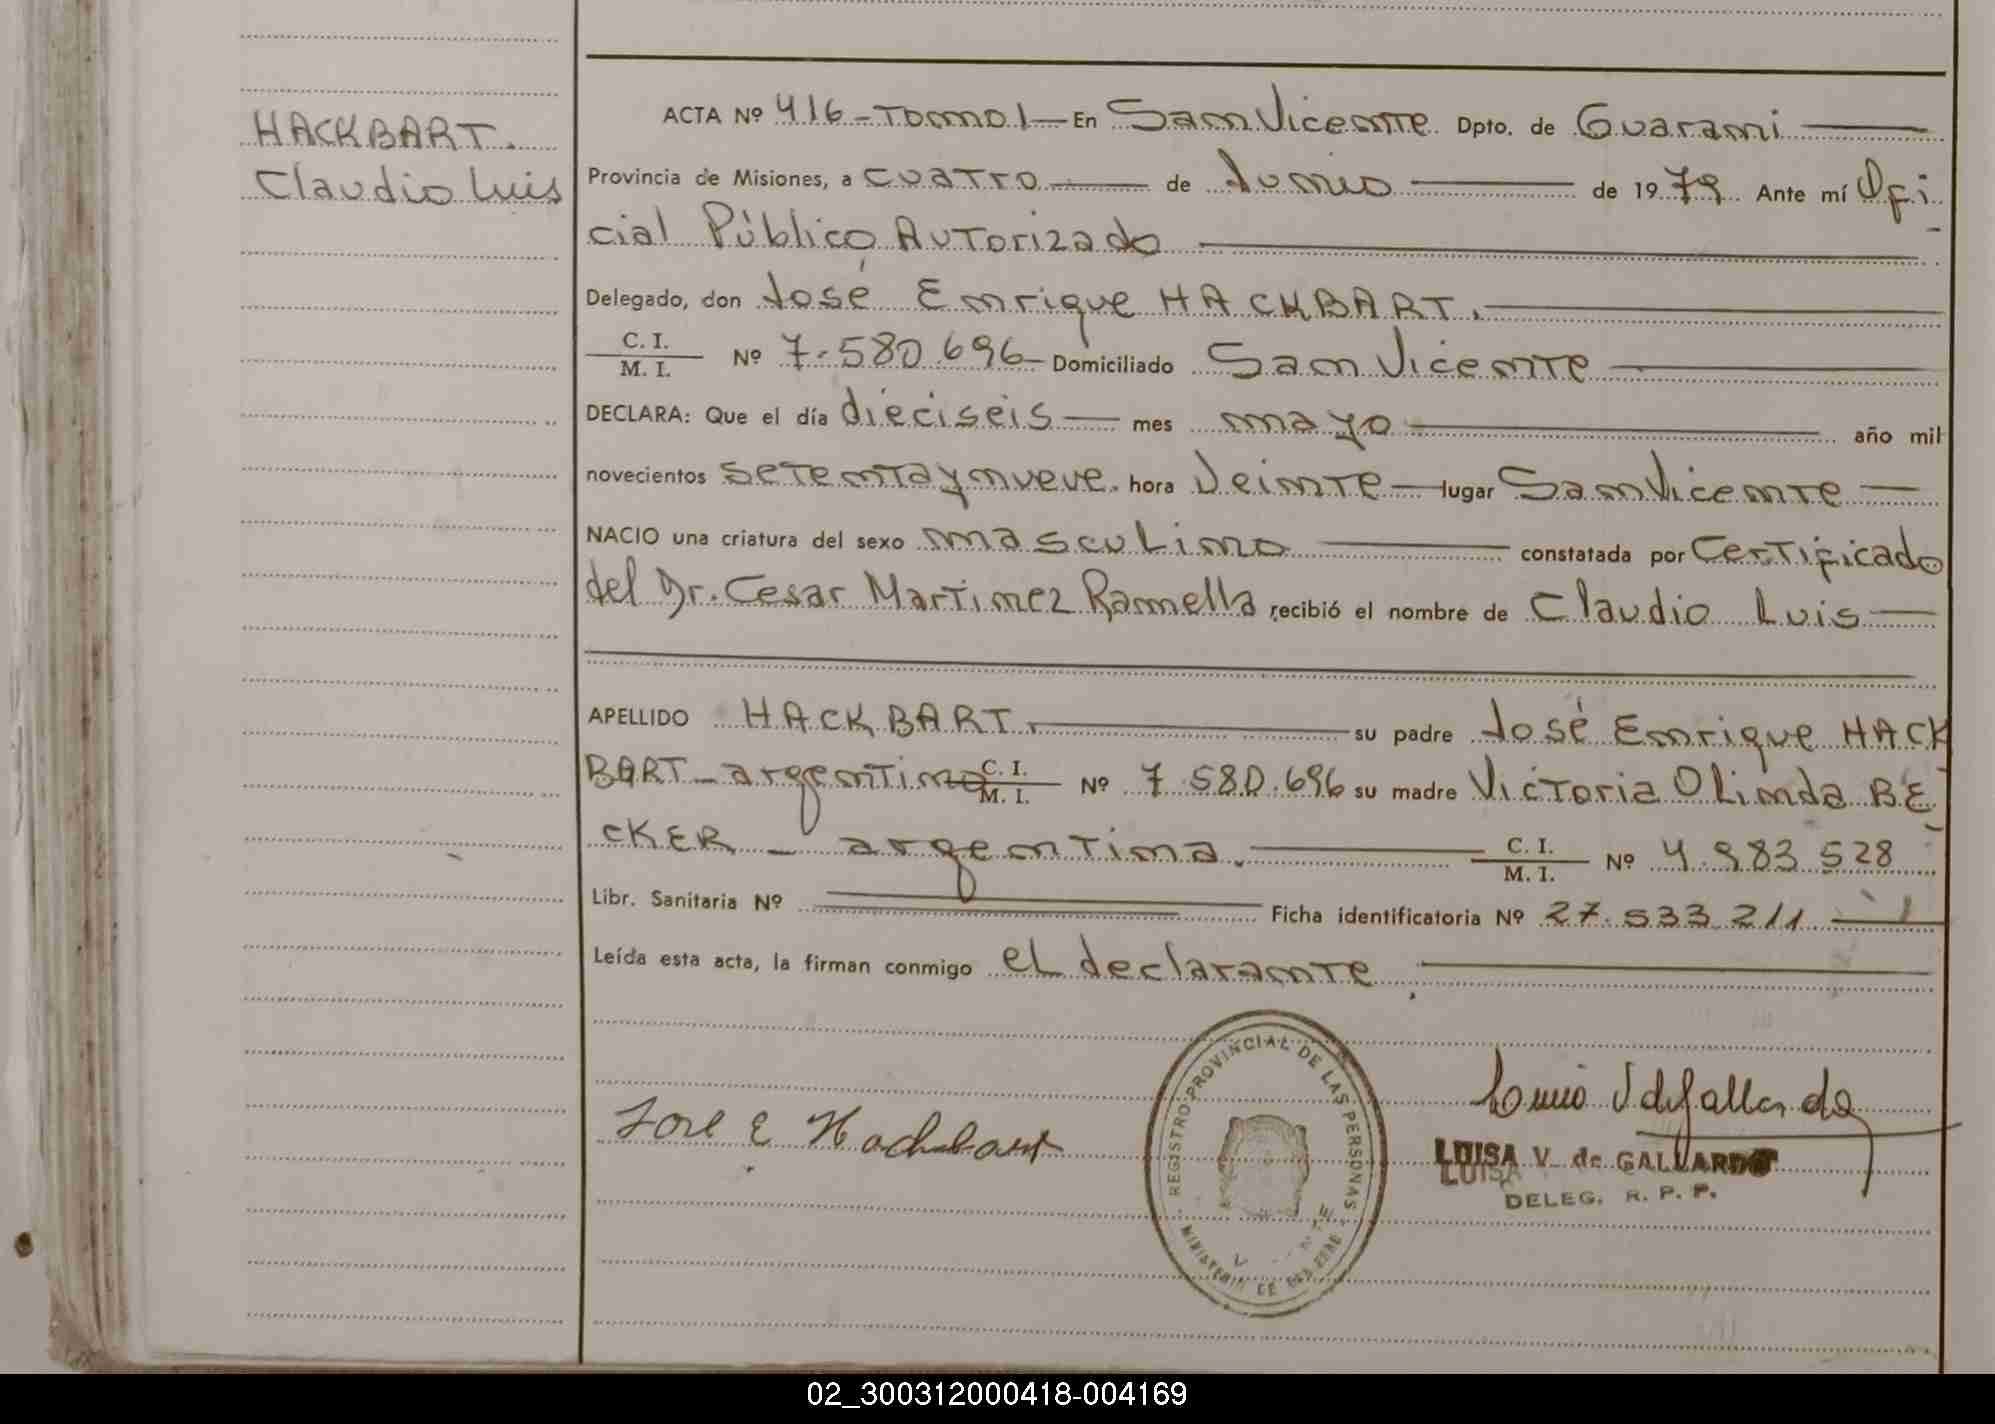 HACKBART.
Claudio Luis
ACTA Nº 416 - Tomo I — En San Vicente Dpto. de Guaraní —
Provincia de Misiones, a cuatro — de Junio — de 1979. Ante mí Ofi
cial Público Autorizado —
Delegado, don José Enrique HACKBART. —
C. I.
M. I. Nº 7.580.696 - Domiciliado San Vicente —
DECLARA: Que el día dieciseis — mes mayo — año mil
novecientos setenta y nueve. hora Veinte — lugar San Vicente —
NACIO una criatura del sexo masculino — constatada por Certificado
del Dr. Cesar Martinez Ramella recibió el nombre de Claudio Luis —
APELLIDO HACKBART. — su padre José Enrique HACK
BART - argentino C. I.
M. I. Nº 7.580.696 su madre Victoria Olinda BE
CKER - argentina. — C. I.
M. I. Nº 4.983.528
Libr. Sanitaria Nº — Ficha identificatoria Nº 27.533.211. —
Leída esta acta, la firman conmigo el declarante —
REGISTRO PROVINCIAL DE LAS PERSONAS
MINISTERIO DE
Jose E Hackbart
Luisa V de Gallardo
LUISA V. de GALLARDO
DELEG. R. P. P.
02_300312000418-004169